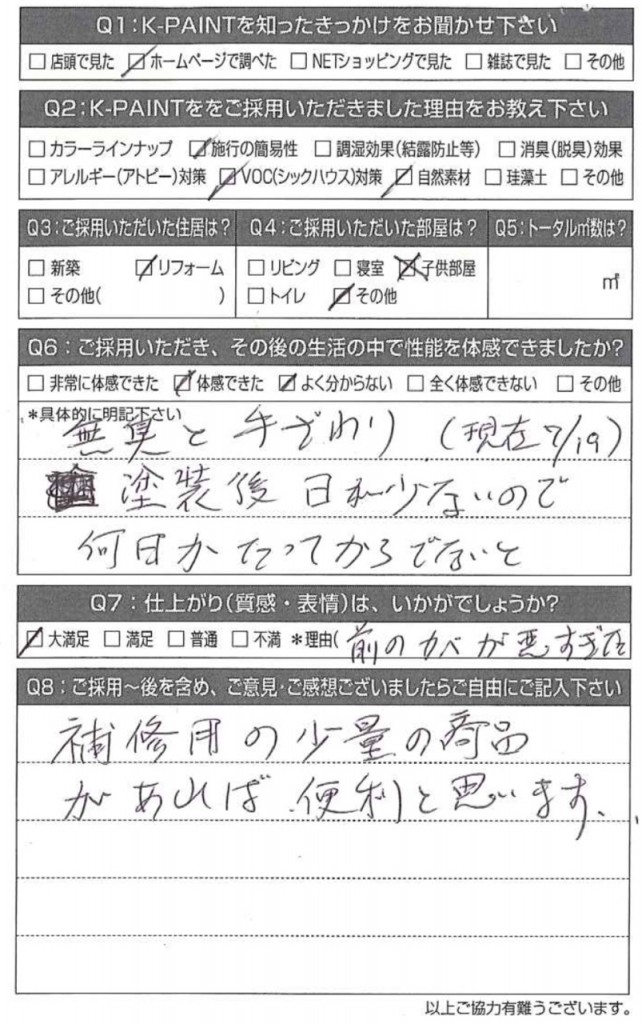 Q1:K-PAINTを知ったきっかけをお聞かせ下さい
□店頭で見た ☑ホームページで調べた □NETショッピングで見た □雑誌で見た □その他
Q2:K-PAINTををご採用いただきました理由をお教え下さい
□カラーラインナップ ☑施行の簡易性 □調湿効果(結露防止等) □消臭(脱臭)効果
□アレルギー(アトピー)対策 ☑VOC(シックハウス)対策 ☑自然素材 □珪藻土 □その他
Q3:ご採用いただいた住居は? Q4:ご採用いただいた部屋は? Q5:トータル㎡数は?
□新築 ☑リフォーム □リビング □寝室 ☒子供部屋
□その他( ) □トイレ ☑その他 ㎡
Q6:ご採用いただき、その後の生活の中で性能を体感できましたか?
□非常に体感できた ☑体感できた ☑よく分からない □全く体感できない □その他
*具体的に明記下さい
無臭と手ざわり (現在7/19)
塗装後日が少ないので
何日かたってからでないと
Q7:仕上がり(質感・表情)は、いかがでしょうか?
☑大満足 □満足 □普通 □不満 *理由(前のカベが悪すぎた
Q8:ご採用~後を含め、ご意見・ご感想ございましたらご自由にご記入下さい
補修用の少量の商品
があれば便利と思います、
以上ご協力有難うございます。